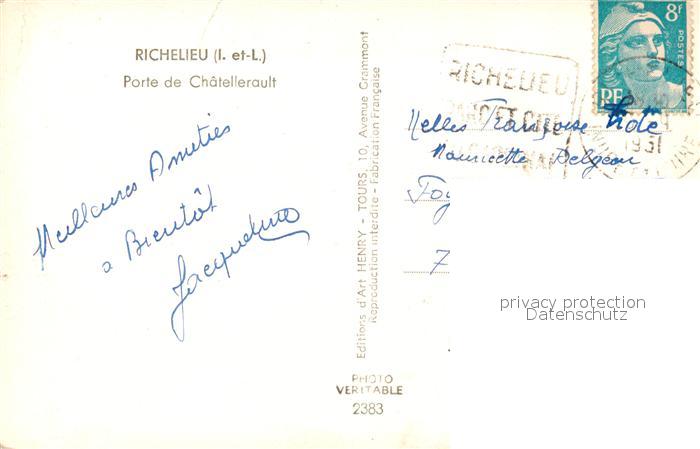 RICHELIEU (I. et-L.)
Porte de Châtellerault
Meilleures Amitiés
a Bientôt
Jacqueline
Editions d'Art HENRY - TOURS, 10, Avenue Grammont
Reproduction interdite - Fabrication Française
PHOTO
VERITABLE
2383
RICHELIEU
8f
POSTES
RF
1951
Melles Françoise
Mauricette
privacy protection
Datenschutz